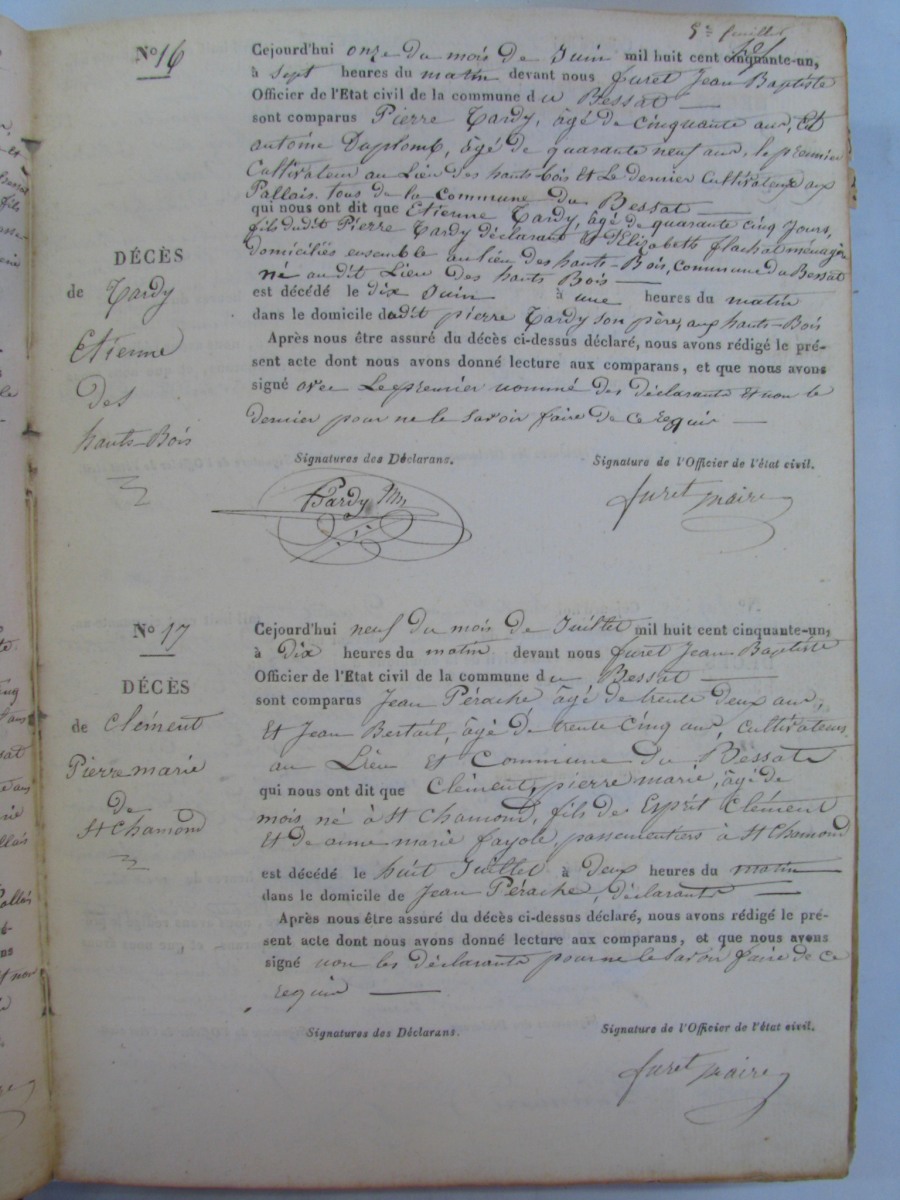 5e feuillet
No 16
Cejourd'hui onze du mois de Juin mil huit cent cinquante-un,
à sept heures du matin devant nous furet Jean Baptiste
Officier de l'Etat civil de la commune du Bessat
sont comparus Pierre Tardy, âgé de cinquante ans, Et
antoine Duplomb, âgé de quarante neuf ans, le premier
Cultivateur au Lieu des hauts-bois et Le dernier Cultivateur aux
Pallais, tous de la Commune du Bessat
qui nous ont dit que Etienne Tardy, âgé de quarante cinq Jours,
fils dudit Pierre Tardy déclarant et d'Elizabeth flachat ménagère
domiciliés ensemble au lieu des hauts-Bois, Commune du Bessat
né au dit Lieu des hauts Bois
est décédé le dix Juin à une heures du matin
dans le domicile dudit pierre Tardy son père, aux hauts-Bois
Après nous être assuré du décès ci-dessus déclaré, nous avons rédigé le pré-
sent acte dont nous avons donné lecture aux comparans, et que nous avons
signé avec Le premier nommé des déclarants et non le
dernier pour ne le savoir faire de ce requis
DÉCÈS
de Tardy
Etienne
des
hauts-Bois
Signatures des Déclarans.
Signature de l'Officier de l'état civil.
Tardy
furet maire
No 17
Cejourd'hui neuf du mois de Juillet mil huit cent cinquante-un,
à Dix heures du matin devant nous furet Jean Baptiste
Officier de l'Etat civil de la commune du Bessat
sont comparus Jean Pérache âgé de trente deux ans,
Et Jean Bertail, âgé de trente cinq ans, cultivateurs
au Lieu et Commune du Bessat
qui nous ont dit que Clément pierre marie, âgé de
mois né à St Chamond, fils de Esprit Clément
Et de anne marie fayole, passementiers à St Chamond
est décédé le huit Juillet à Deux heures du matin
dans le domicile de Jean Pérache, déclarants
Après nous être assuré du décès ci-dessus déclaré, nous avons rédigé le pré-
sent acte dont nous avons donné lecture aux comparans, et que nous avons
signé non les déclarants pour ne le savoir faire de ce
requis
DÉCÈS
de Clément
Pierre marie
de
St Chamond
Signatures des Déclarans.
Signature de l'Officier de l'état civil.
furet maire